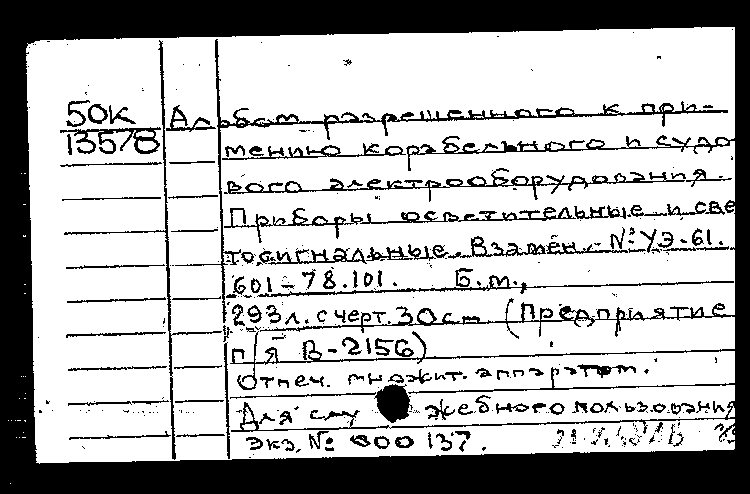 50к
1357/8
Альбом разрешенного к при-
мению корабельного и судо
вого электрооборудования.
Приборы осветительные и све
тосигнальные. Взамен.- № УЭ-61.
601-78.101. Б.м.,
293л. с черт. 30см (Предприятие
п/я В-2156)
Отпеч. множит. аппаратом.
Для слу жебного пользования
Экз. № 000137.